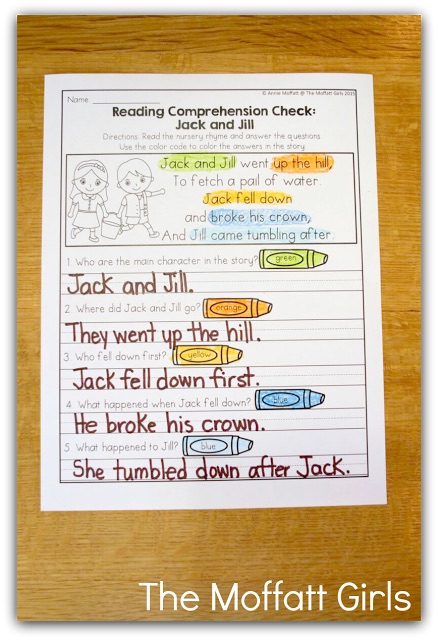 © Annie Moffatt @ The Moffatt Girls 2015
Name:
Reading Comprehension Check:
Jack and Jill
Directions: Read the nursery rhyme and answer the questions.
Use the color code to color the answers in the story.
Jack and Jill went up the hill,
To fetch a pail of water.
Jack fell down
and broke his crown,
And Jill came tumbling after.
1. Who are the main character in the story? green
Jack and Jill.
2. Where did Jack and Jill go? orange
They went up the hill.
3. Who fell down first? yellow
Jack fell down first.
4. What happened when Jack fell down? blue
He broke his crown.
5. What happened to Jill? blue
She tumbled down after Jack.
The Moffatt Girls